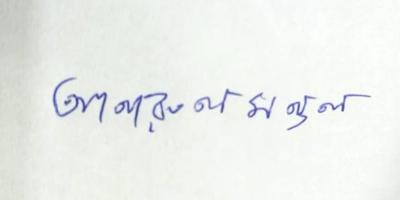 আনারুল মন্ডল